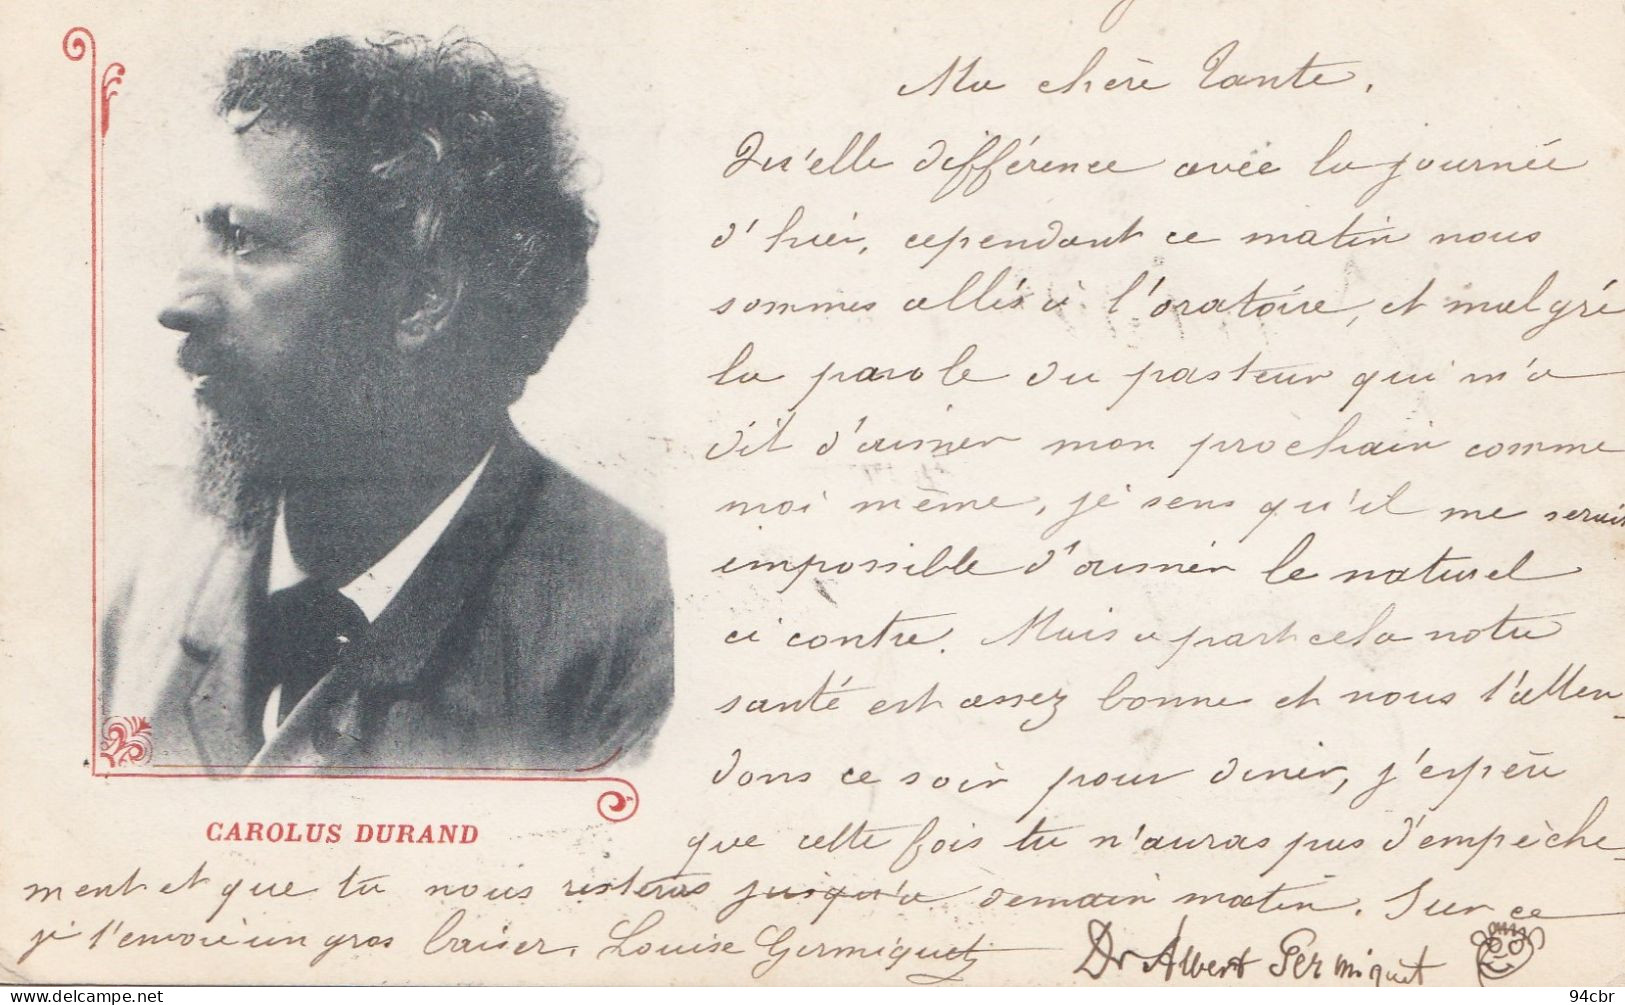 Ma chère Tante,
Qu'elle différence avec la journée
d'hier, cependant ce matin nous
sommes allés à l'oratoire, et malgré
la parole du pasteur qui m'a
dit d'aimer mon prochain comme
moi même, je sens qu'il me serait
impossible d'aimer le naturel
ci contre. Mais a part cela notre
santé est assez bonne et nous t'atten-
dons ce soir pour diner, j'espère
que cette fois tu n'auras pas d'empèche-
ment et que tu nous resteras jusqu'a demain matin. Sur ce
je t'envoie un gros baiser. Louise Germiquet
Dr Albert Germiquet
CAROLUS DURAND
94cbr